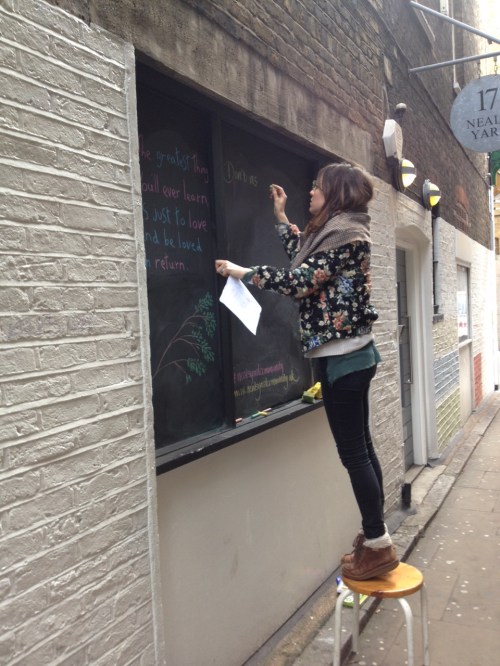 he greatest thing
you'll ever learn
is just to love
and be loved
in return.
Don't as
17
NEAL
YAR